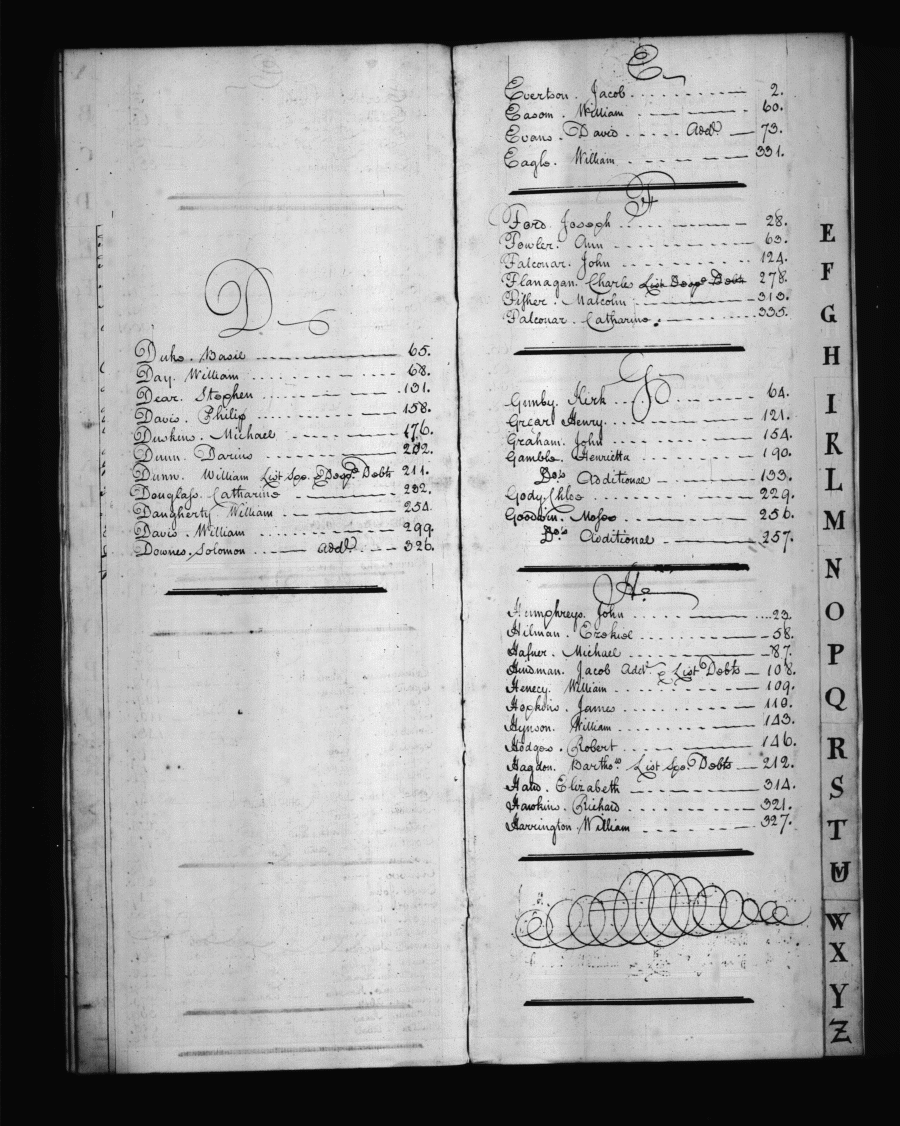 D
Duke. Basil 65.
Day. William 68.
Dear. Stephen 131.
Davis. Philip 158.
Duskins. Michael 176.
Dunn. Darius 202.
Dunn. William List Spe. & Desp. Debts 211.
Douglass. Catharine 232.
Daugherty William 254.
Davis. William 299.
Downes. Solomon Addl. 326.
E
Evertson. Jacob 2.
Easom. William 60.
Evans. David Addl. 73.
Eagle. William 331.
F
Ford. Joseph 28.
Fowler. Ann 63.
Falconar. John 124.
Flanagan. Charles List Desp. Debts 278.
Fisher. Malcolm 313.
Falconar. Catharine 335.
G
Gunby. Kirk 64.
Henry. 121.
Graham. John 154.
Gamble. Henrietta 190.
Do. Additional 193.
Gody. Chloe 229.
Goodwin. Moses 256.
Do. Additional 257.
H
Humphreys. John 23.
Hilman. Ezekiel 58.
Hafner. Michael 87.
Hindman. Jacob Addl. & List Debts 108.
Henecy. William 109.
Hopkins. James 110.
Hynson. William 143.
Hodges. Robert 146.
Hagdon. Bartho. List Spe. Debts 212.
Elizabeth 314.
Hawkins. Richard 321.
Harrington William 327.
E
F
G
H
I
K
L
M
N
O
P
Q
R
S
T
W
X
Y
Z